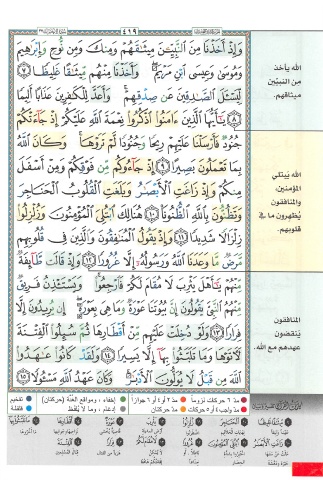 ٤١٩
وَإِذْ أَخَذْنَا مِنَ ٱلنَّبِيِّـۧنَ مِيثَـٰقَهُمْ وَمِنكَ وَمِن نُّوحٍ وَإِبْرَٰهِيمَ
وَمُوسَىٰ وَعِيسَى ٱبْنِ مَرْيَمَ ۖ وَأَخَذْنَا مِنْهُم مِّيثَـٰقًا غَلِيظًا ۝٧
لِّيَسْـَٔلَ ٱلصَّـٰدِقِينَ عَن صِدْقِهِمْ ۚ وَأَعَدَّ لِلْكَـٰفِرِينَ عَذَابًا أَلِيمًا
۝٨ يَـٰٓأَيُّهَا ٱلَّذِينَ ءَامَنُوا۟ ٱذْكُرُوا۟ نِعْمَةَ ٱللَّهِ عَلَيْكُمْ إِذْ جَآءَتْكُمْ
جُنُودٌ فَأَرْسَلْنَا عَلَيْهِمْ رِيحًا وَجُنُودًا لَّمْ تَرَوْهَا ۚ وَكَانَ ٱللَّهُ
بِمَا تَعْمَلُونَ بَصِيرًا ۝٩ إِذْ جَآءُوكُم مِّن فَوْقِكُمْ وَمِنْ أَسْفَلَ
مِنكُمْ وَإِذْ زَاغَتِ ٱلْأَبْصَـٰرُ وَبَلَغَتِ ٱلْقُلُوبُ ٱلْحَنَاجِرَ
وَتَظُنُّونَ بِٱللَّهِ ٱلظُّنُونَا۠ ۝١٠ هُنَالِكَ ٱبْتُلِىَ ٱلْمُؤْمِنُونَ وَزُلْزِلُوا۟
زِلْزَالًا شَدِيدًا ۝١١ وَإِذْ يَقُولُ ٱلْمُنَـٰفِقُونَ وَٱلَّذِينَ فِى قُلُوبِهِم
مَّرَضٌ مَّا وَعَدَنَا ٱللَّهُ وَرَسُولُهُۥٓ إِلَّا غُرُورًا ۝١٢ وَإِذْ قَالَت طَّآئِفَةٌ
مِّنْهُمْ يَـٰٓأَهْلَ يَثْرِبَ لَا مُقَامَ لَكُمْ فَٱرْجِعُوا۟ ۚ وَيَسْتَـْٔذِنُ فَرِيقٌ
مِّنْهُمُ ٱلنَّبِىَّ يَقُولُونَ إِنَّ بُيُوتَنَا عَوْرَةٌ وَمَا هِىَ بِعَوْرَةٍ ۖ إِن يُرِيدُونَ إِلَّا
فِرَارًا ۝١٣ وَلَوْ دُخِلَتْ عَلَيْهِم مِّنْ أَقْطَارِهَا ثُمَّ سُئِلُوا۟ ٱلْفِتْنَةَ
لَـَٔاتَوْهَا وَمَا تَلَبَّثُوا۟ بِهَآ إِلَّا يَسِيرًا ۝١٤ وَلَقَدْ كَانُوا۟ عَـٰهَدُوا۟
ٱللَّهَ مِن قَبْلُ لَا يُوَلُّونَ ٱلْأَدْبَـٰرَ ۚ وَكَانَ عَهْدُ ٱللَّهِ مَسْـُٔولًا ۝١٥
الله يأخذ
من النبيّين
ميثاقهم.
الله يَبتلي
المؤمنين،
والمنافقون
يُظهرون ما في
قلوبهم.
المنافقون
يَنقضون
عهدهم مع الله.
مدّ ٦ حركات لزوماً
مدّ ٢ أو ٤ أو ٦ جوازاً
إخفاء، ومواقع الغُنَّة (حركتان)
تفخيم
مدّ حركتان
إدغام، وما لا يُلفظ
قلقلة